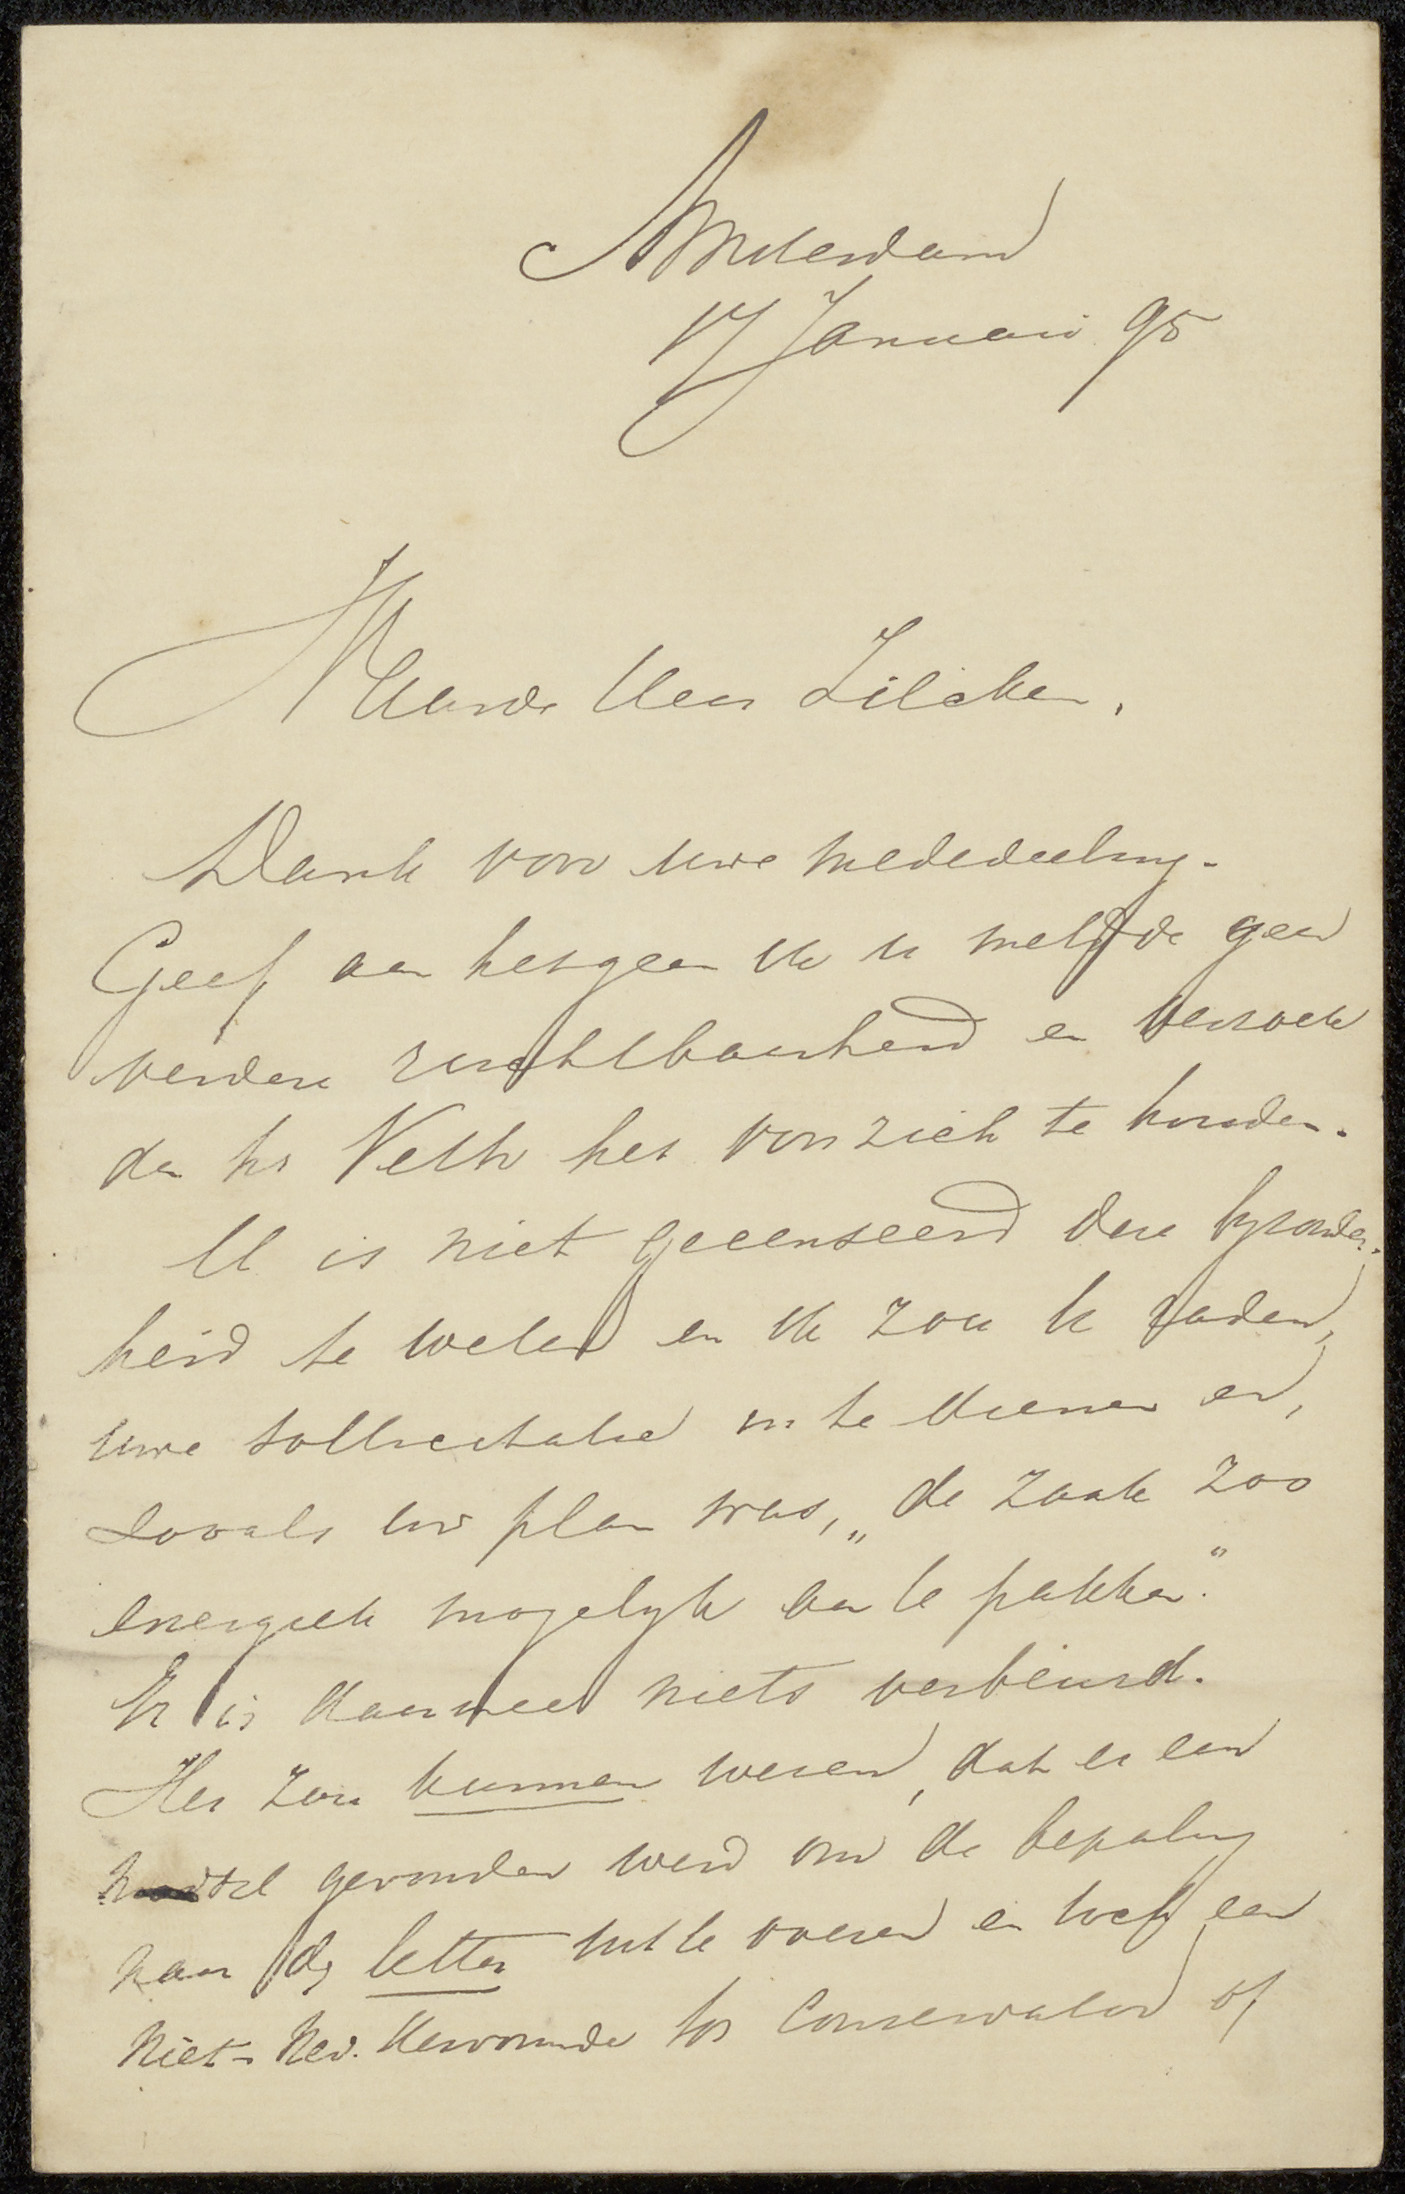 Amsterdam
17 Januari 95
Waarde Heer Zilcken,
Dank voor uwe mededeeling.
Geef aan hetgeen ik u meldde geen
verdere ruchtbaarheid en verzoek
den hr Veth het voor zich te houden.
U is niet gecenseerd deze byzonder-
heid te weten en ik zou u raden,
uwe sollicitatie in te dienen en,
zooals uw plan was, „de zaak zoo
energiek mogelyk aan te pakken."
Er is daarmee niets verbeurd.
Het zou kunnen wezen, dat er een
gevonden werd om de bepaling
naar de letter uit te voeren en toch een
niet-Ned. tot Conservator of